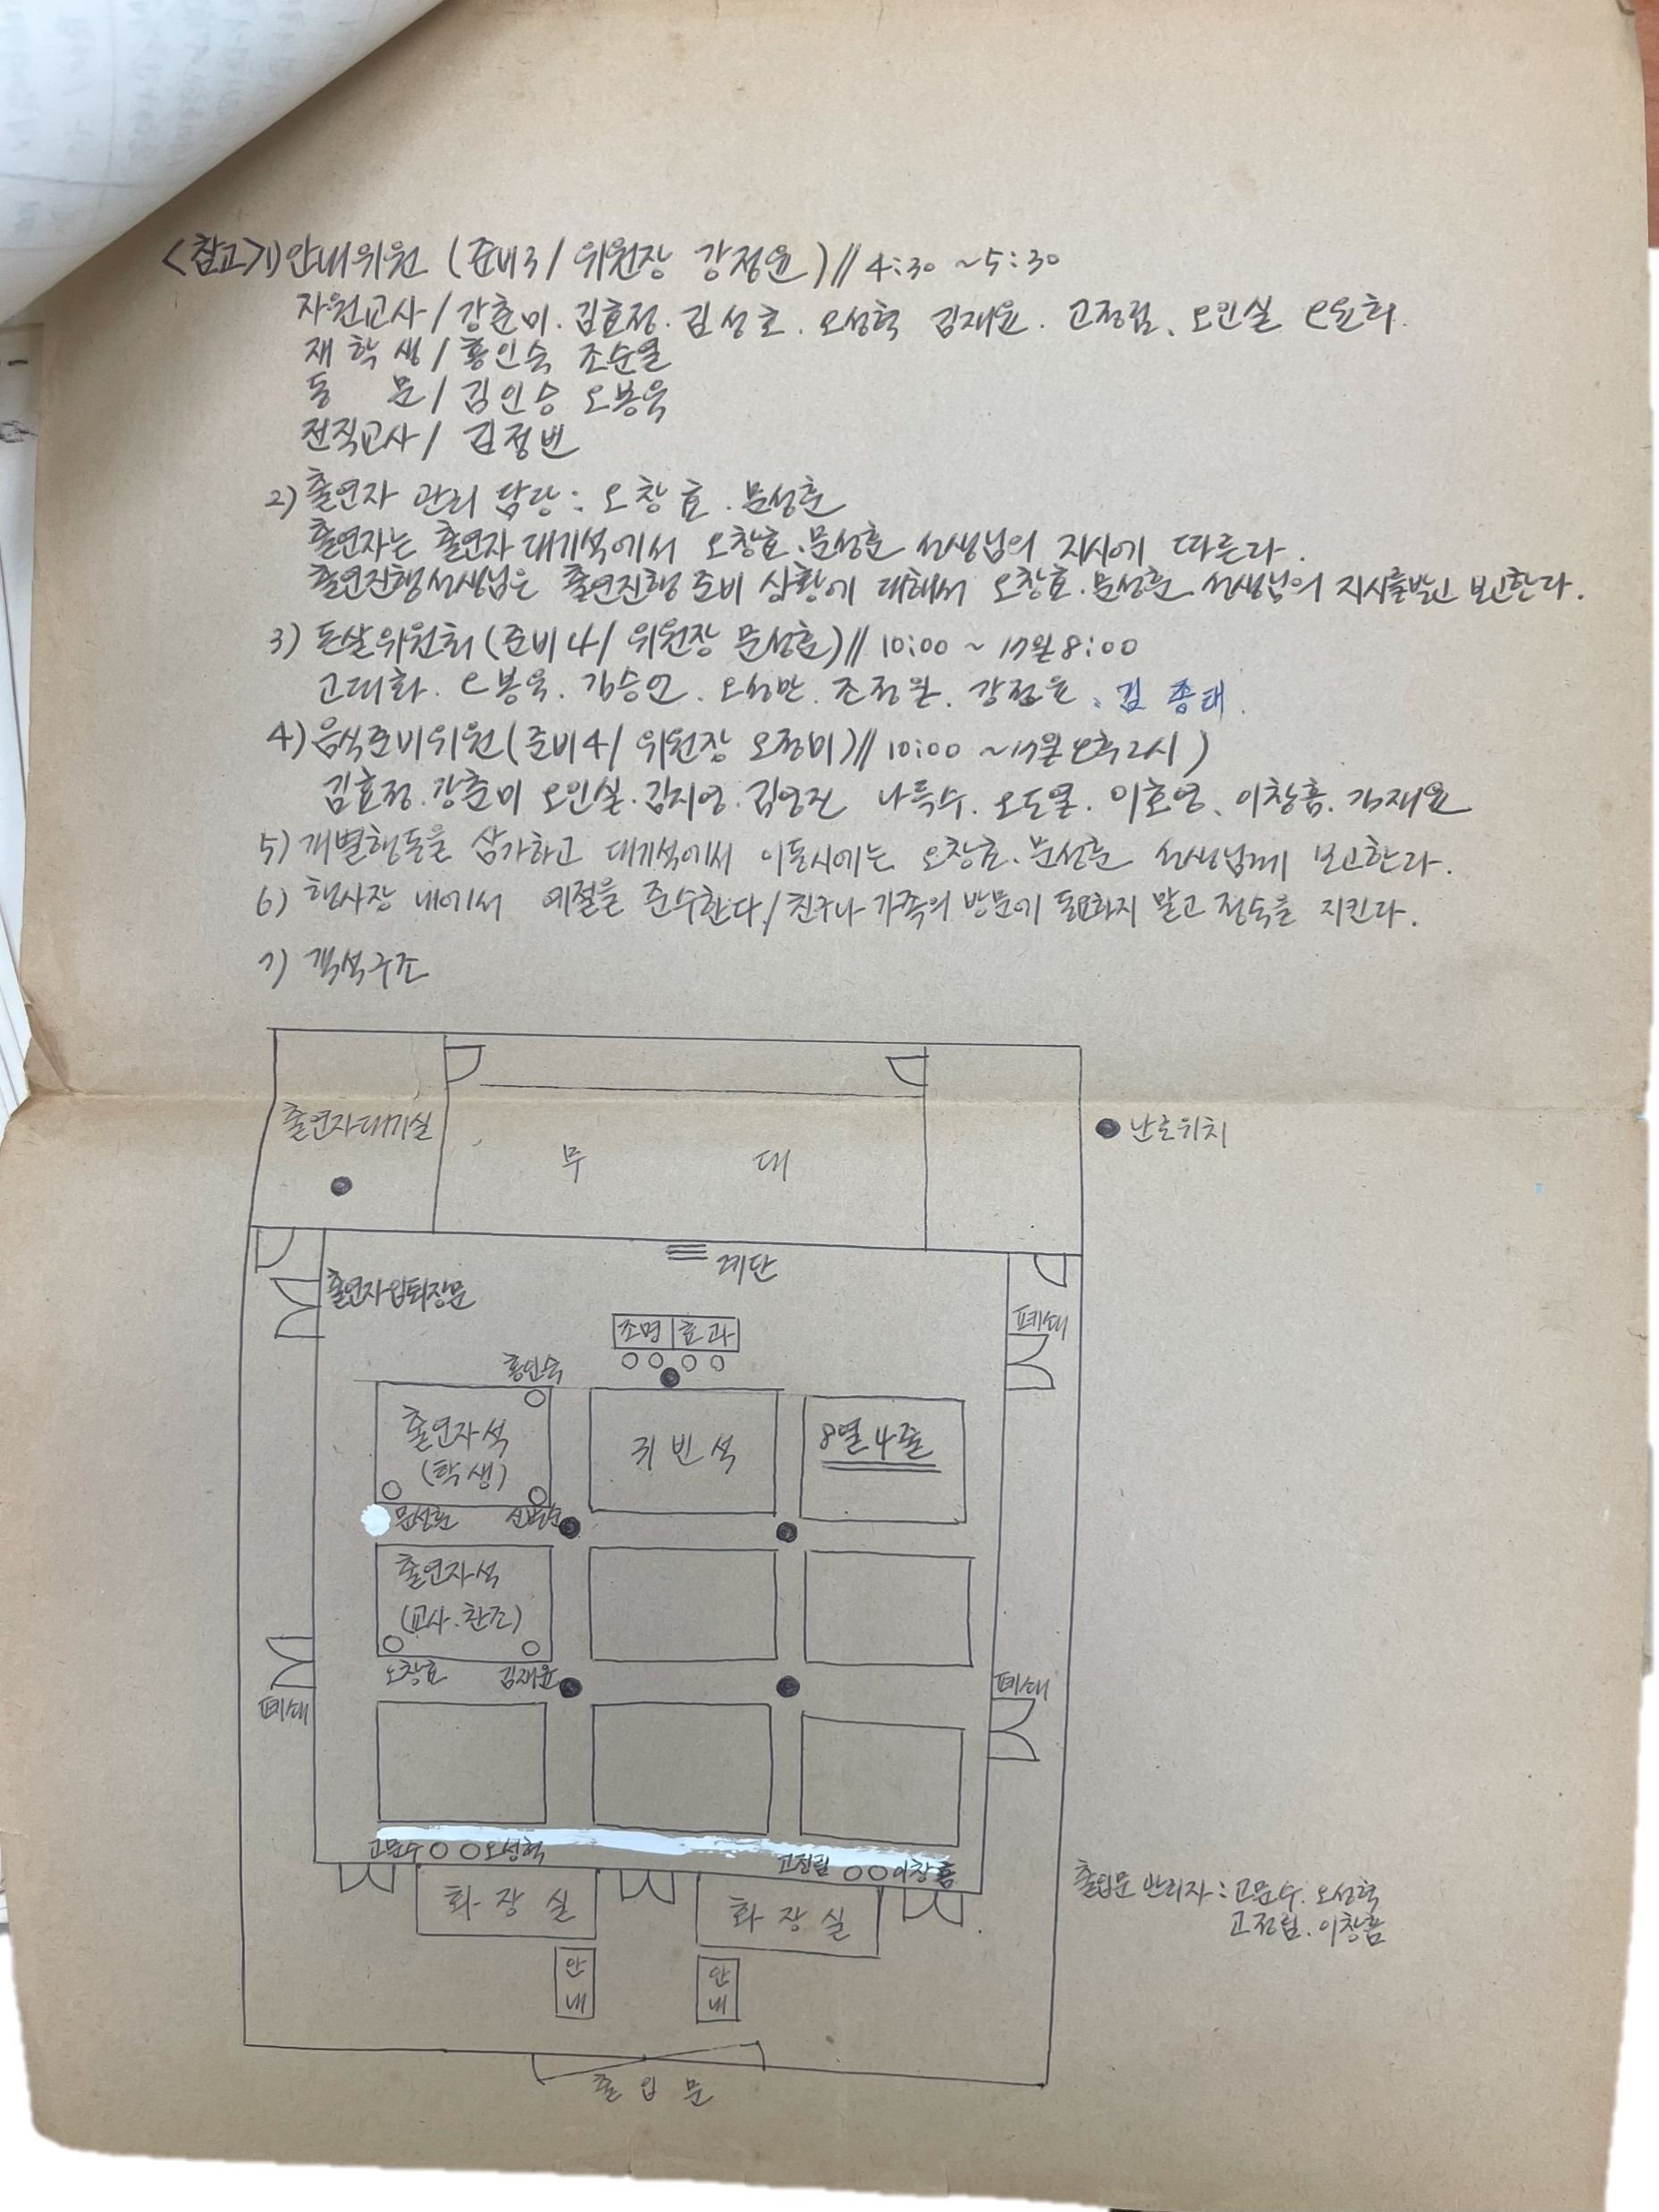 <참고>1) 안내위원 (준비3/ 위원장 강정윤)// 4:30 ~5:30
자원교사/ 강춘미. 김효정. 김성호. 오성혁 김재윤. 고정림, 오인실 오윤희.
재 학 생/ 홍인숙 조순열
동 문/ 김인승 오봉욱
전직교사/ 김정빈
2) 출연자 관리 담당: 오창효. 문성훈
출연자는 출연자 대기석에서 오창효.문성훈 선생님의 지시에 따른다.
출연진행선생님은 출연진행 준비 상황에 대해서 오창효.문성훈 선생님의 지시를받고 보고한다.
3) 돈살위원회 (준비4/ 위원장 문성훈)// 10:00 ~ 17일 8:00
고대화. 오봉욱. 김승언. 오성만. 조정원. 강정윤. 김 종태.
4) 음식준비위원 (준비4/ 위원장 오정미)// 10:00 ~17일 오후2시)
김효정. 강춘미 오인실. 김지영. 김영진 나득수. 오도열. 이호영. 이창흠. 김재윤
5) 개별행동을 삼가하고 대기석에서 이동시에는 오창효.문성훈 선생님께 보고한다.
6) 행사장 내에서 예절을 준수한다./친구나 가족의 방문에 동요하지 말고 정숙을 지킨다.
7) 객석구조
출연자대기실
무 대
난로위치
계단
출연자입퇴장문
폐쇄
조명 효과
홍인숙
출연자석
(학생)
귀 빈 석
8열 4줄
문성훈
출연자석
(교사.찬조)
오창효 김재윤
폐쇄
폐쇄
고문수 오성혁
고정림 이창흠
화 장 실
화 장 실
출입문 관리자: 고문수. 오성혁
고정림. 이창흠
안내
안내
출 입 문